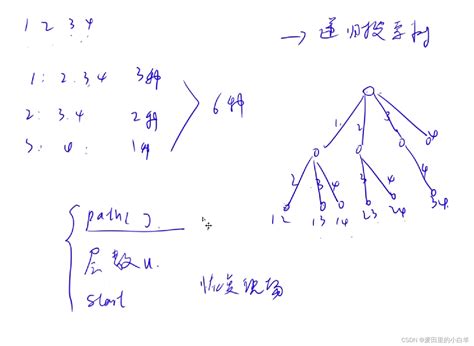 1 2 3 4
→ 递归搜索树
1: 2 3 4 3种
2: 3 4 2种
3: 4: 1种
6种
1 2 3 4
2 3 4 3 4 4
12 13 14 23 24 34
path[].
层数u.
start
恢复现场
CSDN @麦田里的小白羊